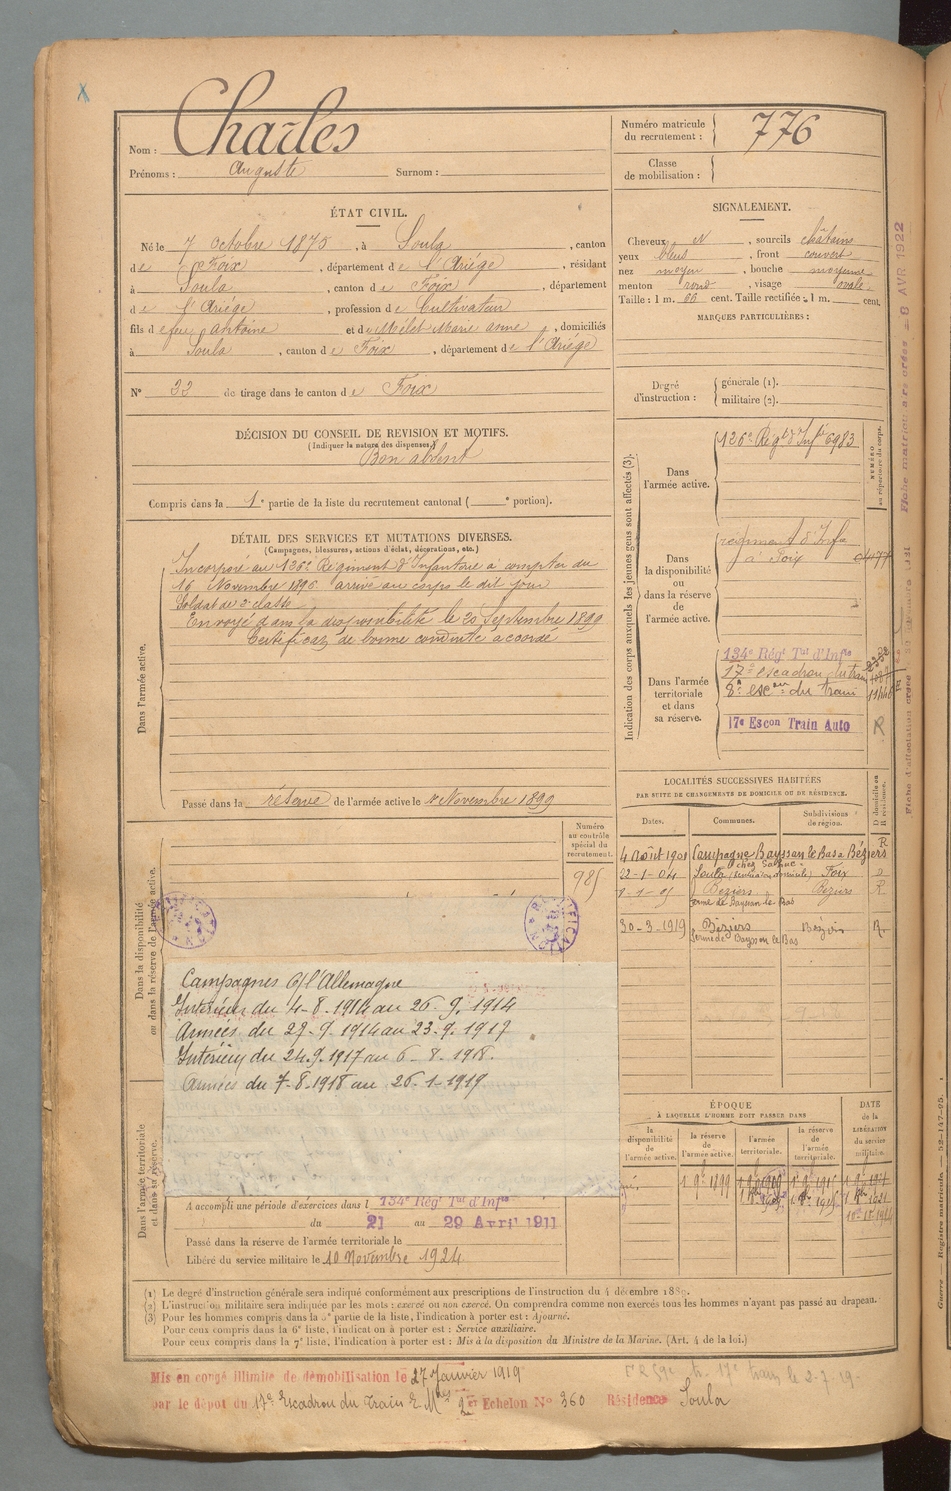 Nom : Charles
Prénoms : Auguste Surnom :
Numéro matricule du recrutement : 776
Classe de mobilisation :
ÉTAT CIVIL.
Né le 7 Octobre 1875, à Soula, canton
de Foix, département de l'Ariége, résidant
à Soula, canton de Foix, département
de l'Ariége, profession de Cultivateur
fils de feu Antoine et de Mélet Marie Anne, domiciliés
à Soula, canton de Foix, département de l'Ariége
N° 33 de tirage dans le canton de Foix
SIGNALEMENT.
Cheveux N, sourcils châtains
yeux bleus, front couvert
nez moyen, bouche moyenne
menton rond, visage ovale.
Taille : 1 m. 66 cent. Taille rectifiée : 1 m. cent.
MARQUES PARTICULIÈRES :
Degré d'instruction : générale (1).
militaire (2).
DÉCISION DU CONSEIL DE REVISION ET MOTIFS.
(Indiquer la nature des dispenses.)
Bon absent
Compris dans la 1e partie de la liste du recrutement cantonal ( e portion).
DÉTAIL DES SERVICES ET MUTATIONS DIVERSES.
(Campagnes, blessures, actions d'éclat, décorations, etc.)
Dans l'armée active.
Incorporé au 126e Régiment d'Infanterie à compter du
16 Novembre 1896 arrivé au corps le dit jour
Soldat de 2e classe
Envoyé dans la disponibilité le 20 Septembre 1899
Certificat de bonne conduite accordé
Passé dans la réserve de l'armée active le 1er Novembre 1899
Indication des corps auxquels les jeunes gens sont affectés (3).
NUMÉRO au répertoire du corps.
Dans l'armée active.
126e Régt d'Infie 6983
Dans la disponibilité ou dans la réserve de l'armée active.
régiment d'Infie
à Foix
Dans l'armée territoriale et dans sa réserve.
134e Régt Tal d'Infie
17e escadron du train
8e escon du train
17e Escon Train Auto R
Fiche matricule créée 8 AVR 1922
LOCALITÉS SUCCESSIVES HABITÉES
PAR SUITE DE CHANGEMENTS DE DOMICILE OU DE RÉSIDENCE.
Dates. Communes. Subdivisions de région. D domicile ou R résidence.
4 Août 1901 Campagne Bayssan le Bas à Béziers R
22-1-04 Soula Foix
Béziers Béziers R
ferme de Bayssan le Bas
30-3-1919 Béziers Béziers R.
ferme de Bayssan le Bas
Dans la disponibilité ou dans la réserve de l'armée active.
Numéro au contrôle spécial du recrutement.
985
Campagnes C/ l'Allemagne
Intérieur du 4-8-1914 au 26.9.1914
Armées du 27-9-1914 au 23.9.1917
Intérieur du 24.9.1917 au 6-8-1918.
Armées du 7-8-1918 au 26-1-1919
ÉPOQUE
À LAQUELLE L'HOMME DOIT PASSER DANS
la disponibilité de l'armée active. la réserve de l'armée active. l'armée territoriale. la réserve de l'armée territoriale.
DATE de la LIBÉRATION du service militaire.
1 9bre 1899
Dans l'armée territoriale et dans sa réserve.
A accompli une période d'exercices dans l 134e Régt Tal d'Infie
du 21 au 29 Avril 1911
Passé dans la réserve de l'armée territoriale le
Libéré du service militaire le 10 Novembre 1924
(1) Le degré d'instruction générale sera indiqué conformément aux prescriptions de l'instruction du 4 décembre 1889.
(2) L'instruction militaire sera indiquée par les mots : exercé ou non exercé. On comprendra comme non exercés tous les hommes n'ayant pas passé au drapeau.
(3) Pour les hommes compris dans la 5e partie de la liste, l'indication à porter est : Ajourné.
Pour ceux compris dans la 6e liste, l'indication à porter est : Service auxiliaire.
Pour ceux compris dans la 7e liste, l'indication à porter est : Mis à la disposition du Ministre de la Marine. (Art. 4 de la loi.)
Mis en congé illimité de démobilisation le 27 Janvier 1919
par le dépot du 17e Escadron du Train 2e Echelon N° 360 Résidence Soula
Guerre — Registre matricule — 52-147-95.